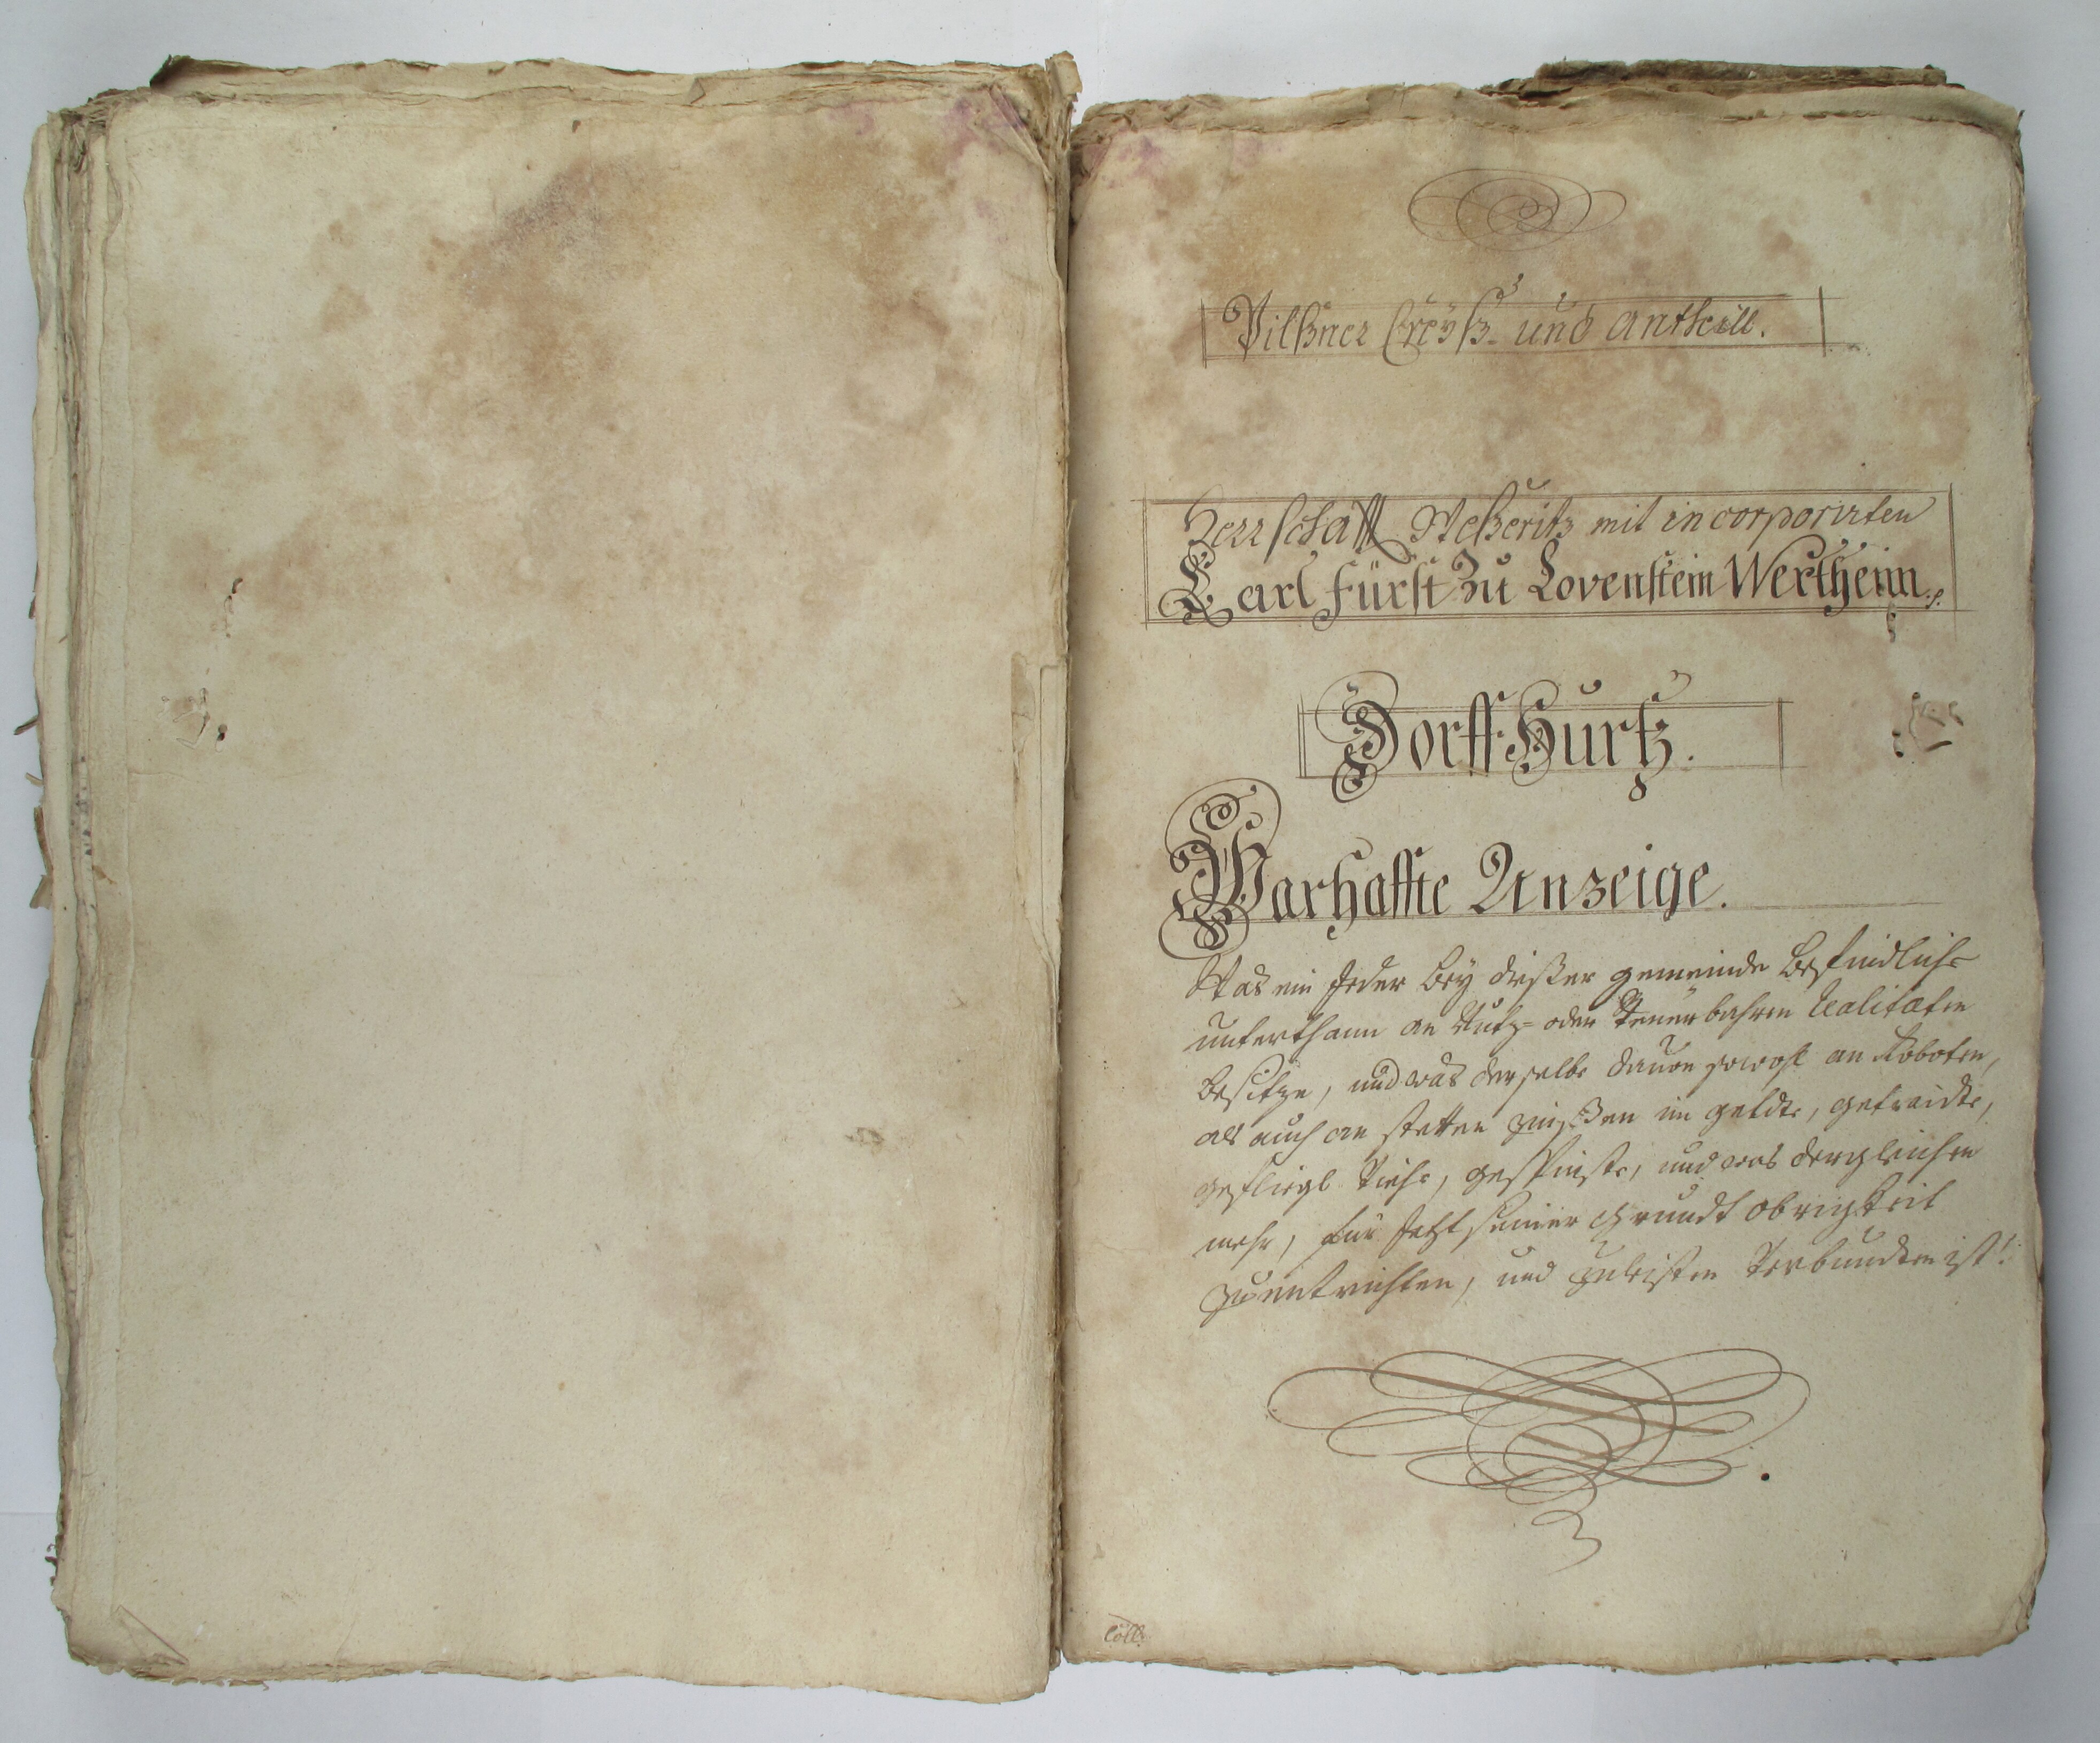 Pilßner Creÿß- und Antheill.
Herrschafft Steßeritz mit incorporirten
Carl Fürst Zu Lovenstein Wertheim.
Dorff Hurtz.
Warhaffte Anzeige.
Was ein Jeder beÿ dießer gemeinde befindliche
unterthann an Nutz- oder steuerbahren realitæten
besitze, und was derselbe davon sowohl an Roboten,
als auch an stetten zinßen im geldte, getraidte,
gefliegl Viehe, gespinste, und was dergleichen
mehr, für Jetzt seiner Grundt obrigkeit
zu entrichten, und zuleisten verbundten ist!
Coll: